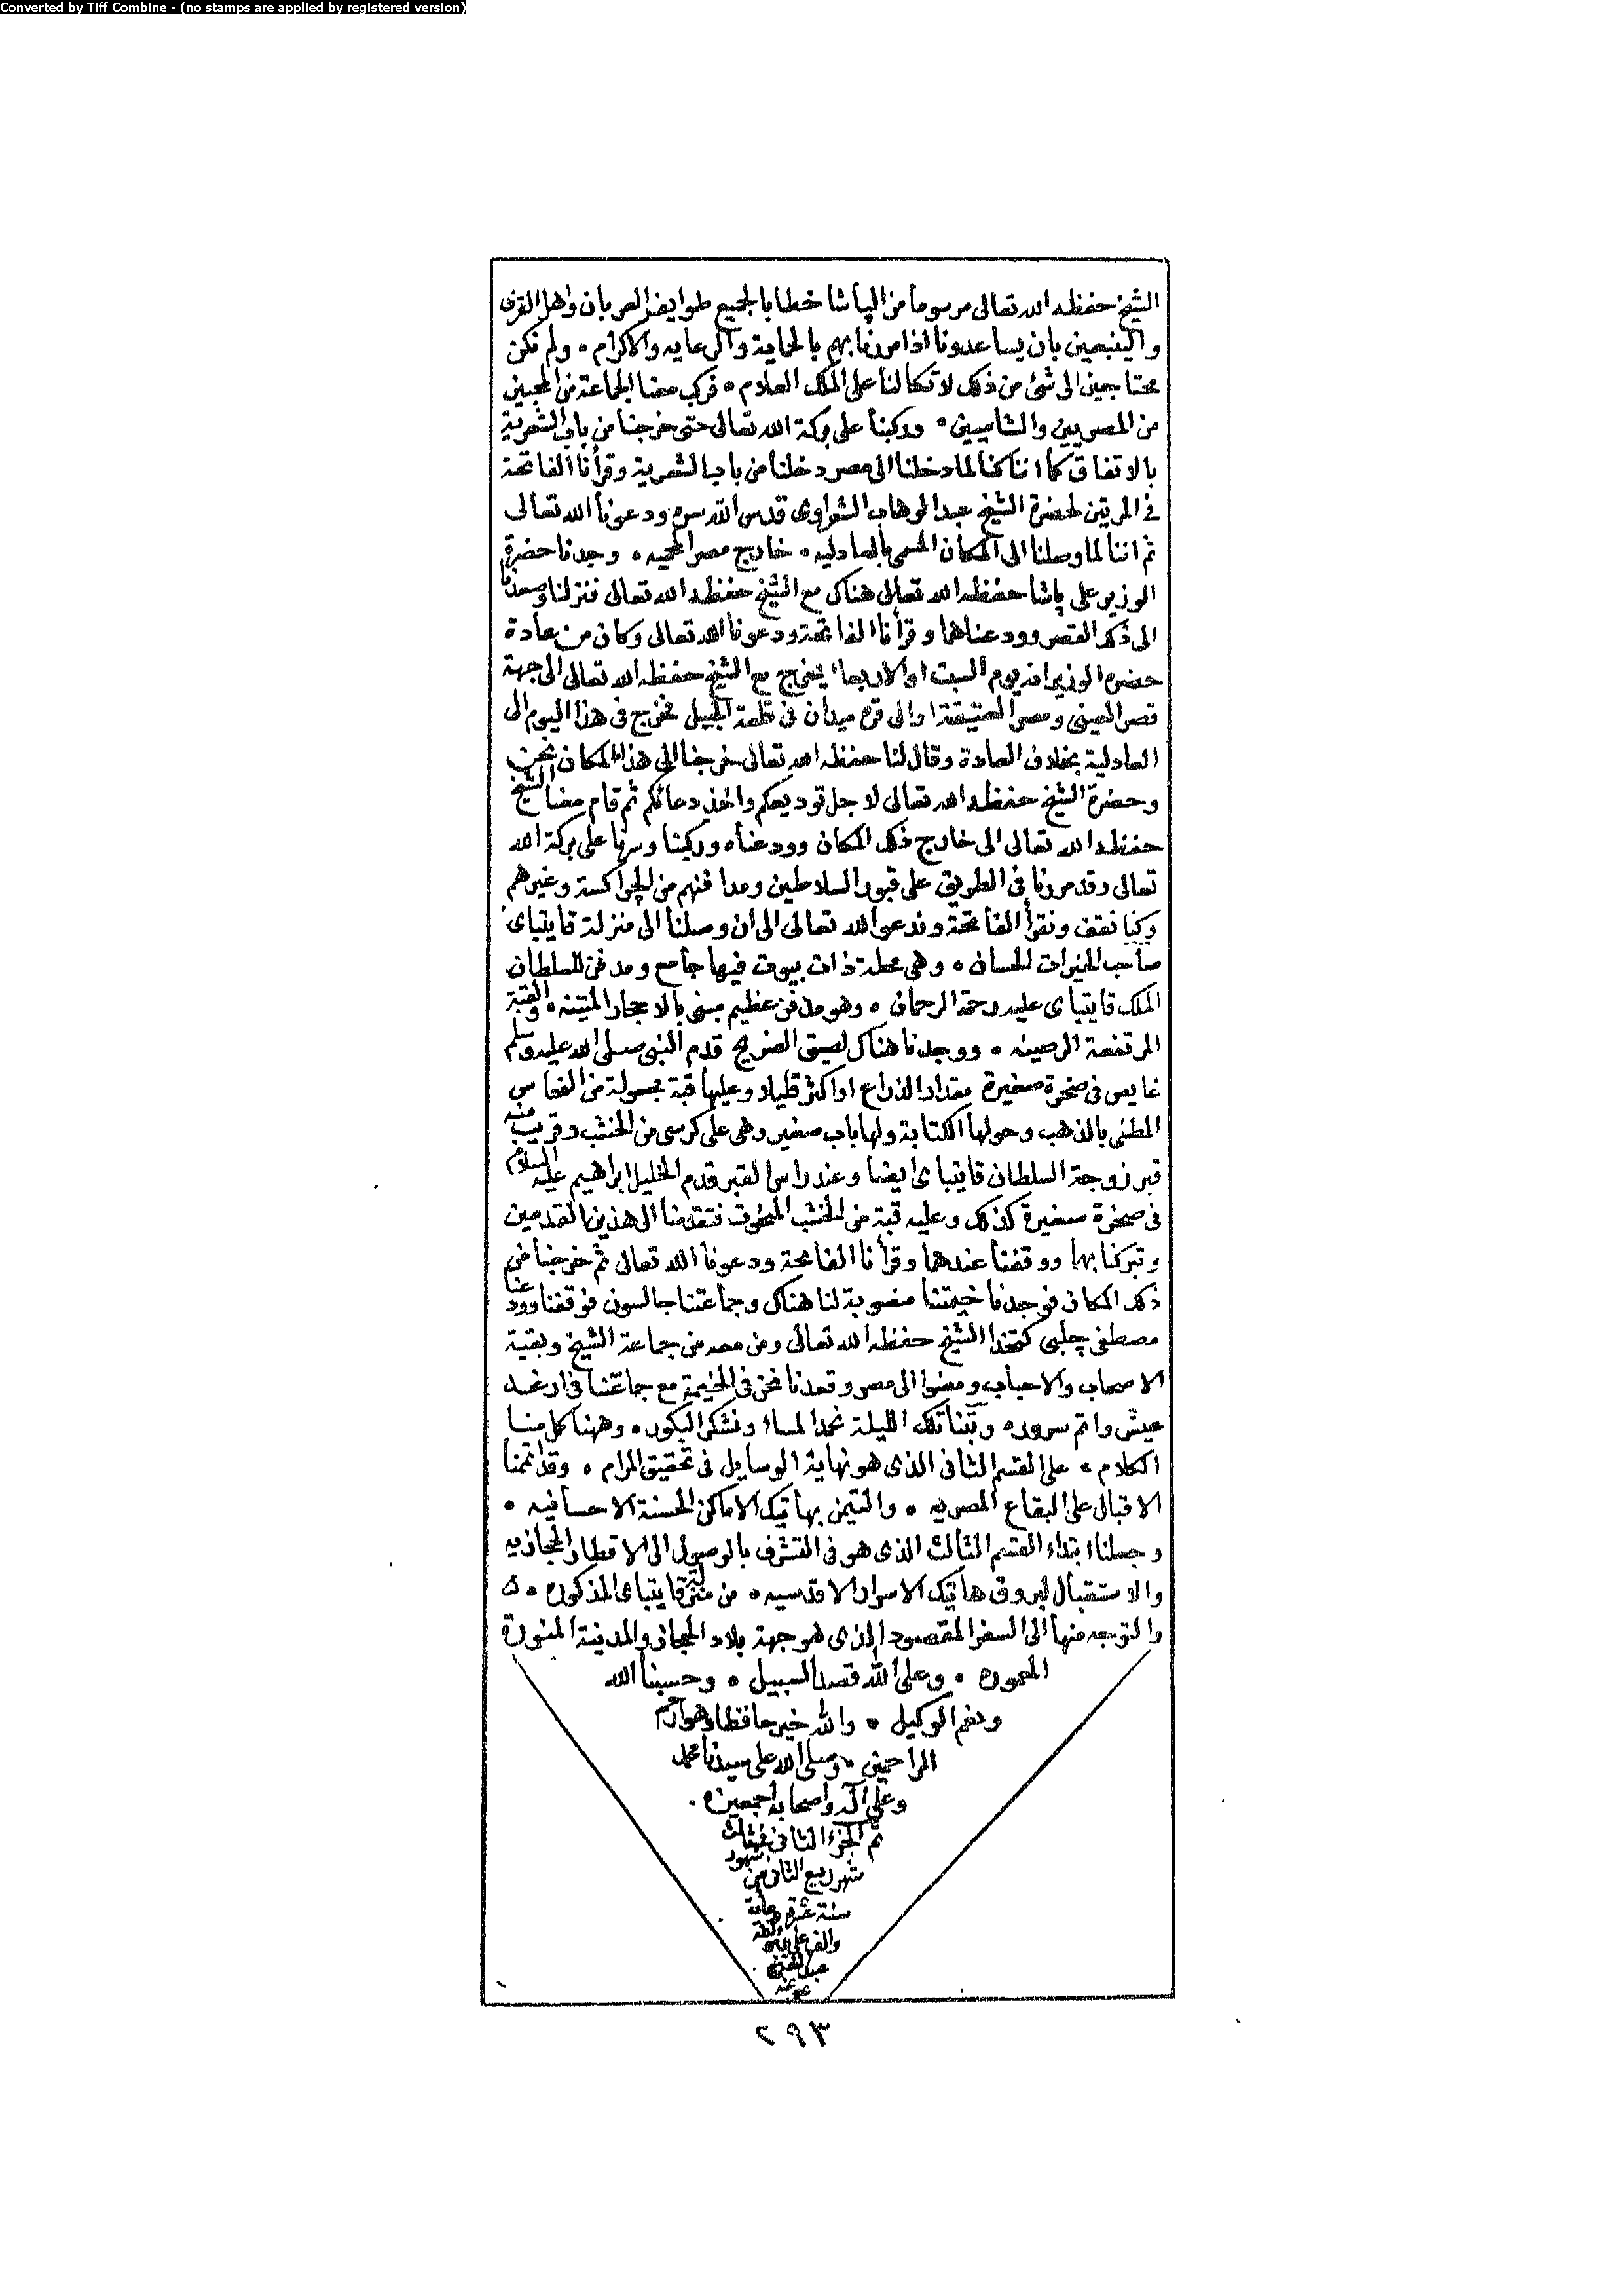 Converted by Tiff Combine - (no stamps are applied by registered version)
الشيخ حفظه الله تعالى مرسوما من الپاشا خطابا لجميع طوايف العربان واهل القرى
والينبعين بان يساعدونا اذا مررنا بهم بالحماية والرعايه والاكرام ۰ ولم نكن
محتاجين الى شئ من ذلك لاتكالنا على الملك العلام ۰ فركب معنا الجماعة من المحبين
من المصريين والشاميين ۰ وركبنا على بركة الله تعالى حتى خرجنا من باب الشعرية
بالاتفاق كما اننا كنا لما دخلنا الى مصر دخلنا من باب الشعرية وقرأنا الفاتحة
فى المرتين لحضرة الشيخ عبد الوهاب الشعراوى قدس الله سره ودعونا الله تعالى
ثم اننا لما وصلنا الى المكان المسمى بالعادليه ۰ خارج مصر المحميه ۰ وجدنا حضرة
الوزير على پاشا حفظه الله تعالى هناك مع الشيخ حفظه الله تعالى فنزلنا وصعدنا
الى ذلك القصر وودعناهما وقرأنا الفاتحة ودعونا الله تعالى وكان من عادة
حضرة الوزير انه يوم السبت او الاربعاء يخرج مع الشيخ حفظه الله تعالى الى جهة
قصر العينى ومصر العتيقة او الى قره ميدان فى قلعة الجبيل فخرج فى هذا اليوم الى
العادلية بخلاف العادة وقال لنا حفظه الله تعالى خرجنا الى هذا المكان نحن
وحضرة الشيخ حفظه الله تعالى لاجل توديعكم واخذ دعائكم ثم قام معنا الشيخ
حفظه الله تعالى الى خارج ذلك المكان وودعناه وركبنا وسرنا على بركة الله
تعالى وقد مررنا فى الطريق على قبور السلاطين ومدافنهم من الچراكسة وغيرهم
وكنا نقف ونقرأ الفاتحة وندعو الله تعالى الى ان وصلنا الى منزلة قايتباى
صاحب الخيرات الحسان ۰ وهى محلة ذات بيوت فيها جامع ومدفن للسلطان
الملك قايتباى عليه رحمة الرحمان ۰ وهو مدفن عظيم مبنى بالاحجار المتينه ۰ والقبة
المرتفعة الرصينه ۰ ووجدنا هناك لصيق الضريح قدم النبى صلى الله عليه وسلم
غايص فى صخرة صغيرة مقدار الذراع او اكثر قليلا وعليها قبة معمولة من النحاس
المطلى بالذهب وحولها الكتابة ولها باب صغير وهى على كرسى من الخشب وقريب منه
قبر زوجة السلطان قايتباى ايضا وعند راس القبر قدم الخليل ابراهيم عليه السلام
فى صخرة صغيرة كذلك وعليه قبة من الخشب المنحوت فتقدمنا الى هذين القدمين
وتبركنا بهما ووقفنا عندهما وقرأنا الفاتحة ودعونا الله تعالى ثم خرجنا من
ذلك المكان فوجدنا خيمتنا منصوبة لنا هناك وجماعتنا جالسون فوقفنا وودعنا
مصطفى چلبى كتخدا الشيخ حفظه الله تعالى ومن معه من جماعة الشيخ وبقية
الاصحاب والاحباب ومضوا الى مصر وقعدنا نحن فى الخيمة مع جماعتنا فى ارغد
عيش واتم سرور ۰ وبتنا تلك الليلة نحمد المساء ونشكر البكور ۰ وههنا كمل منا
الكلام ۰ على القسم الثانى الذى هو نهاية الوسايل فى تحقيق المرام ۰ وقد اتممنا
الاقبال على البقاع المصريه ۰ والتيمن بهاتيك الاماكن الحسنة الاحسانيه ۰
وجعلنا ابتداء القسم الثالث الذى هو فى التشرف بالوصول الى الاقطار الحجازيه
والاستقبال لبروق هاتيك الاسرار الاقدسيه ۰ من منزلة قايتباى المذكوره ۰
والتوجه منها الى السفر المقصود الذى هو جهة بلاد الحجاز والمدينة المنورة
المعموره ۰ وعلى الله قصد السبيل ۰ وحسبنا الله
ونعم الوكيل ۰ والله خير حافظا وهو ارحم
الراحمين ۰ وصلى الله على سيدنا محمد
وعلى آله واصحابه اجمعين ۰
تم الجزء الثانى فى ثالث
شهر ربيع الثانى من شهور
سنة عشرة ومائة
والف على يد
عفى عنه
٢٩٣